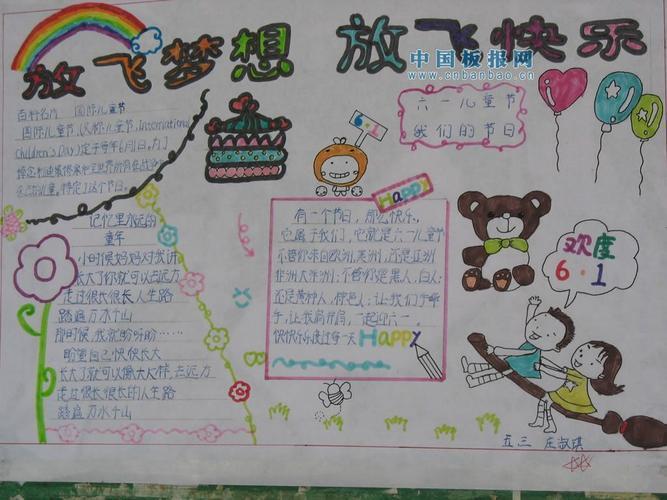 放飞梦想 放飞快乐
中国板报网
www.cnbanbao.cn
百科名片 国际儿童节
国际儿童节,(又称儿童节,International
Children's Day)定于每年6月1日。为了
悼念
儿童,特定了这个节日。
6·1
六一儿童节
我们的节日
Happy
有一个节日,那么快乐,
它属于我们,它就是六一儿童节
不管你来自欧洲,美洲,还是亚洲
非洲大洋洲;不管你是黑人,白人;
还是黄种人,棕色人;让我们手牵
手,让我肩并肩,一起迎六一,
快快乐乐度过每一天
HAPPY
记忆里永远的
童年
小时候妈妈对我讲
长大了你就可以去远方
走过很长很长人生路
踏遍万水千山
那时候,我就盼呀盼……
盼望自己快快长大
长大了就可以像大人样,去远方
走过很长很长的人生路
踏遍万水千山
欢度
6·1
五三 庄淑琪